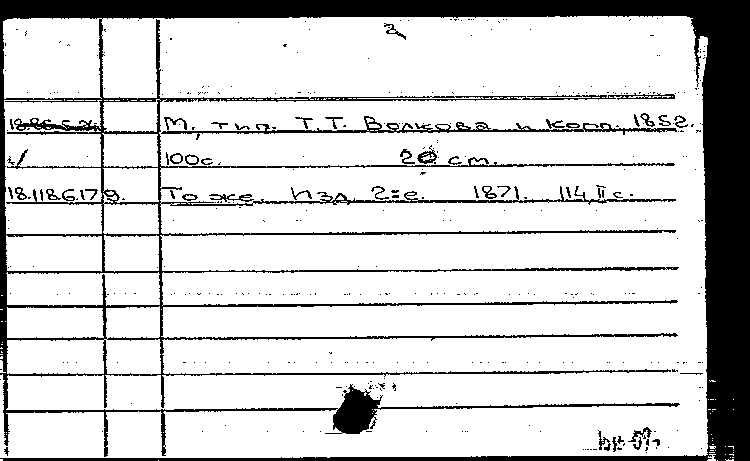 2
М., тип. Т.Т. Волкова и комп., 1858.
100с. 20 см.
18.118.6.179. То же. Изд. 2-е. 1871. 114, II с.